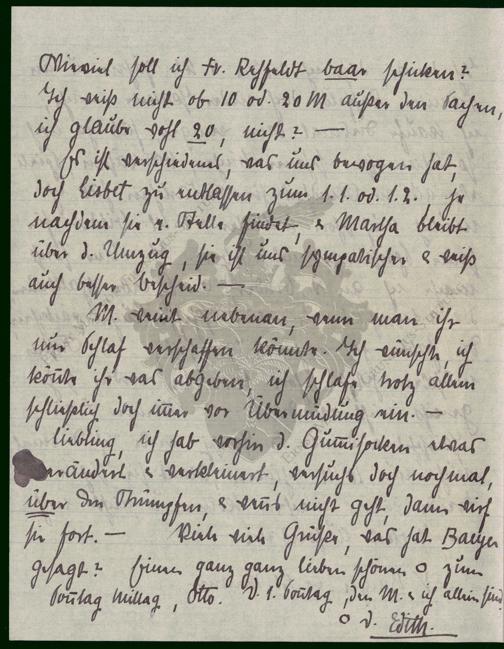 Wieviel soll ich Fr. Rehfeldt baar schicken?
Ich weiß nicht ob 10 od. 20 M außer den Sachen,
ich glaube wohl 20, nicht? —
Es ist verschiedenes, was uns bewogen hat,
doch Lisbet zu entlassen zum 1.1. od. 1.2. je
nachdem sie e. Stelle findet, & Martha bleibt
über d. Umzug, sie ist uns sympatischer & weiß
auch besser bescheid. —
M. weint nebenan, wenn man ihr
nur Schlaf verschaffen könnte. Ich wünschte, ich
könnte ihr was abgeben, ich schlafe trotz allem
schließlich doch immer vor Übermüdung ein. —
Liebling, ich hab vorhin d. Gummisocken etwas
verändert & verkleinert, versuchs doch nochmal,
über den Strümpfen, & wenns nicht geht, dann wirf
sie fort. — Viele viele Grüße, was hat Baeyer
gesagt? Einen ganz ganz lieben schönen O zum
Sonntag Mittag, Otto. D. 1. Sonntag, den M. & ich allein sind
O d. Edith.